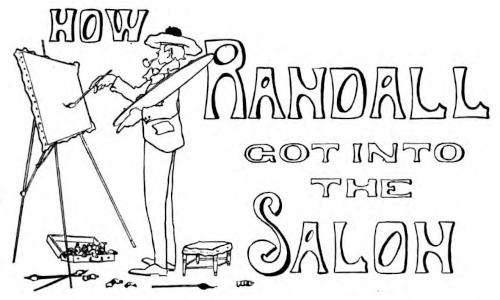 HOW
RANDALL
GOT INTO
THE
SALON